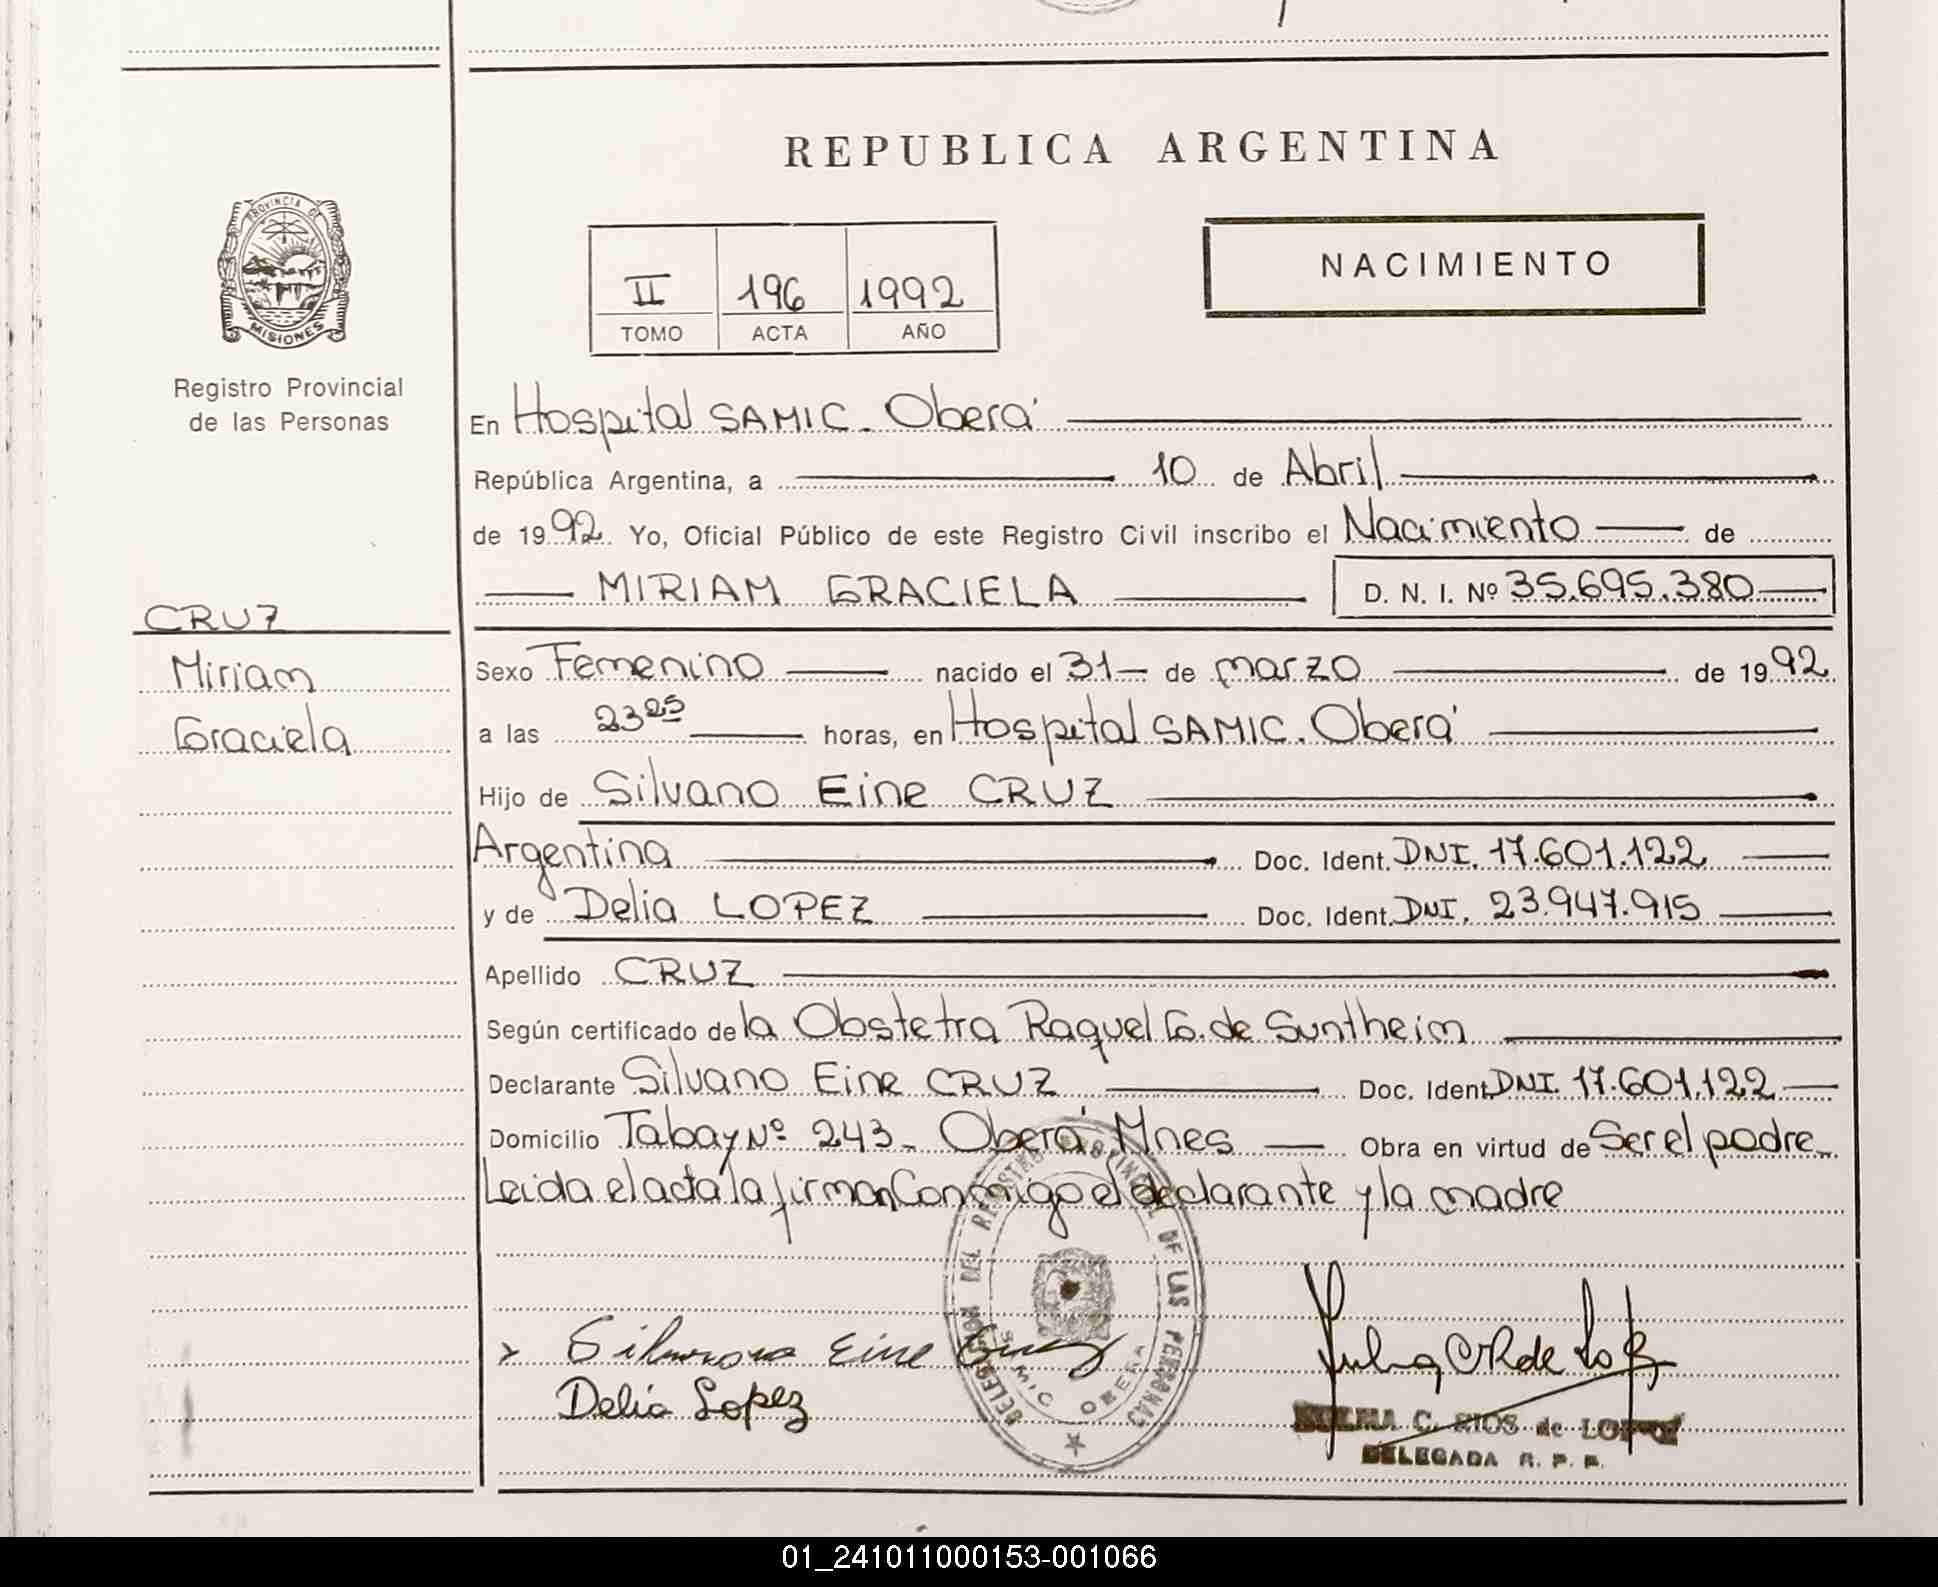 REPUBLICA ARGENTINA
PROVINCIA DE
MISIONES
Registro Provincial
de las Personas
II 196 1992
TOMO ACTA AÑO
NACIMIENTO
En Hospital SAMIC. Oberá
República Argentina, a 10 de Abril
de 1992. Yo, Oficial Público de este Registro Civil inscribo el Nacimiento de
MIRIAM GRACIELA D. N. I. Nº 35.695.380
CRUZ
Miriam
Graciela
Sexo Femenino nacido el 31 de marzo de 1992
a las 23 25 horas, en Hospital SAMIC. Oberá
Hijo de Silvano Eine CRUZ
Argentina Doc. Ident. DNI. 17.601.122
y de Delia LOPEZ Doc. Ident. DNI. 23.947.915
Apellido CRUZ
Según certificado de la Obstetra Raquel G. de Suntheim
Declarante Silvano Eine CRUZ Doc. Ident. DNI. 17.601.122
Domicilio Tabay Nº 243- Oberá Mnes Obra en virtud de Ser el padre
Leida el acta la firman Conmigo el declarante y la madre
DELEGACION DEL REGISTRO PROVINCIAL DE LAS PERSONAS
SAMIC OBERA
Eine Cruz
Delia Lopez
C. RIOS de LOPEZ
DELEGADA R. P. P.
01_241011000153-001066